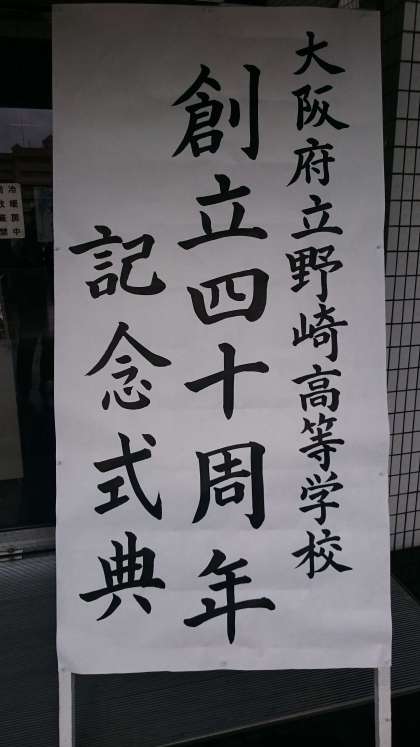 大阪府立野崎高等学校
創立四十周年
記念式典